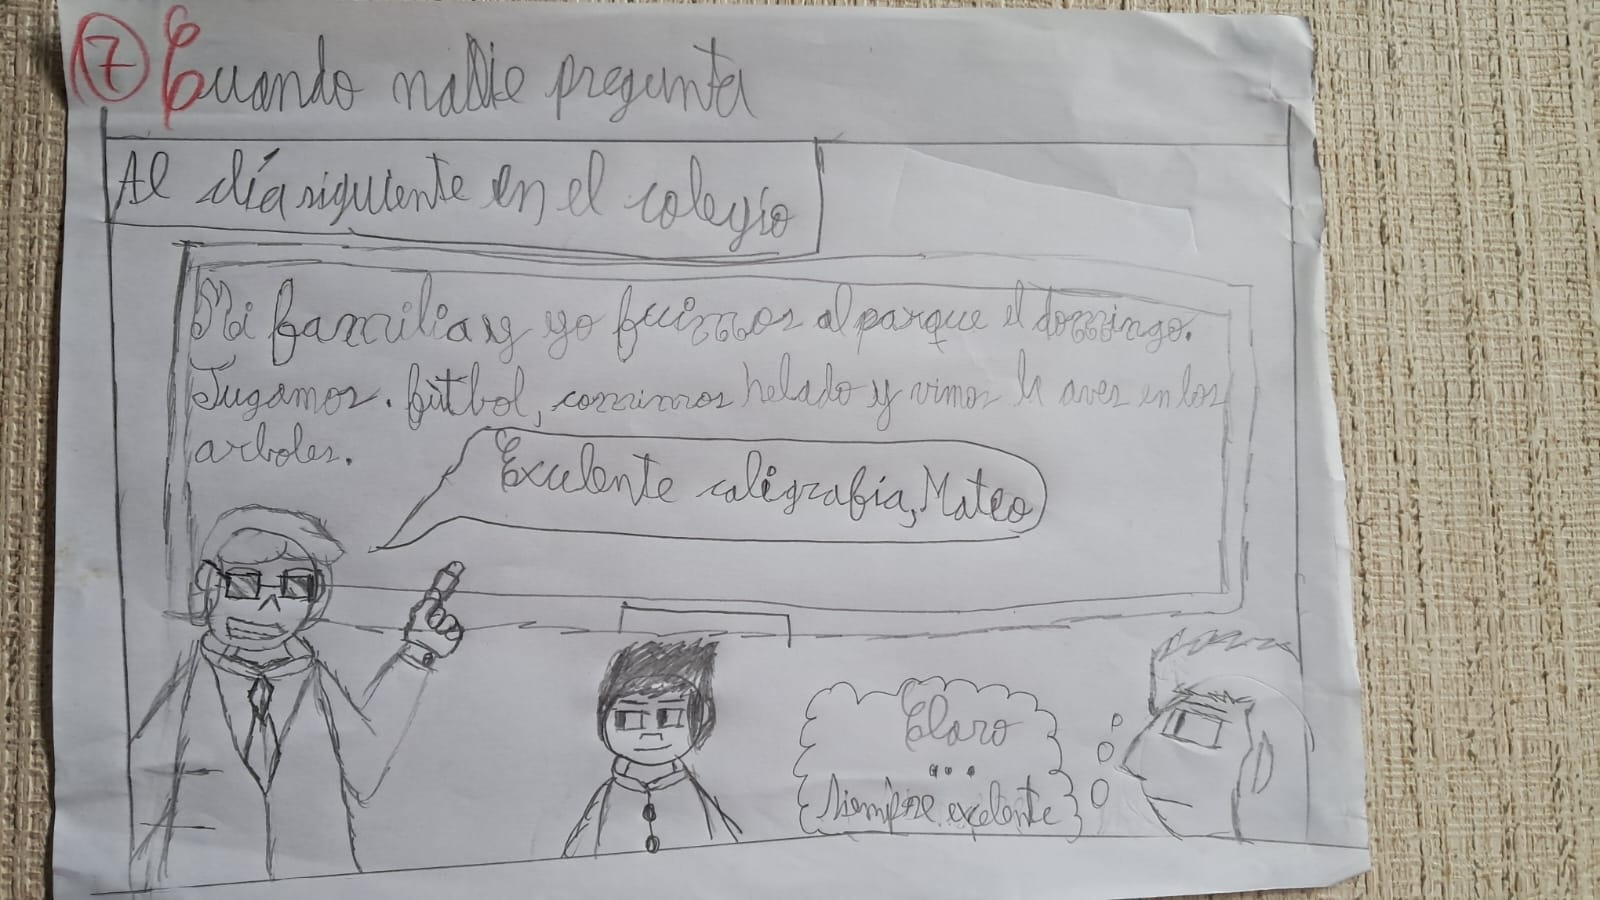 17 Cuando nadie pregunta
Al día siguiente en el colegio
Mi familia y yo fuimos al parque el domingo.
Jugamos. fútbol, comimos helado y vimos la aves en los
arboles.
Excelente caligrafía, Mateo
Claro
...
siempre excelente